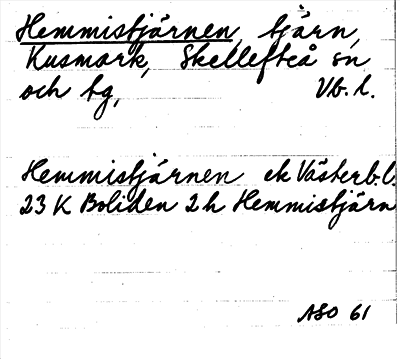 Hemmistjärnen, tjärn,
Kusmark, Skellefteå sn
och tg, Vb. l.
Hemmistjärnen ek Västerb.l.
23 K Boliden 2 h Hemmistjärn
ASO 61